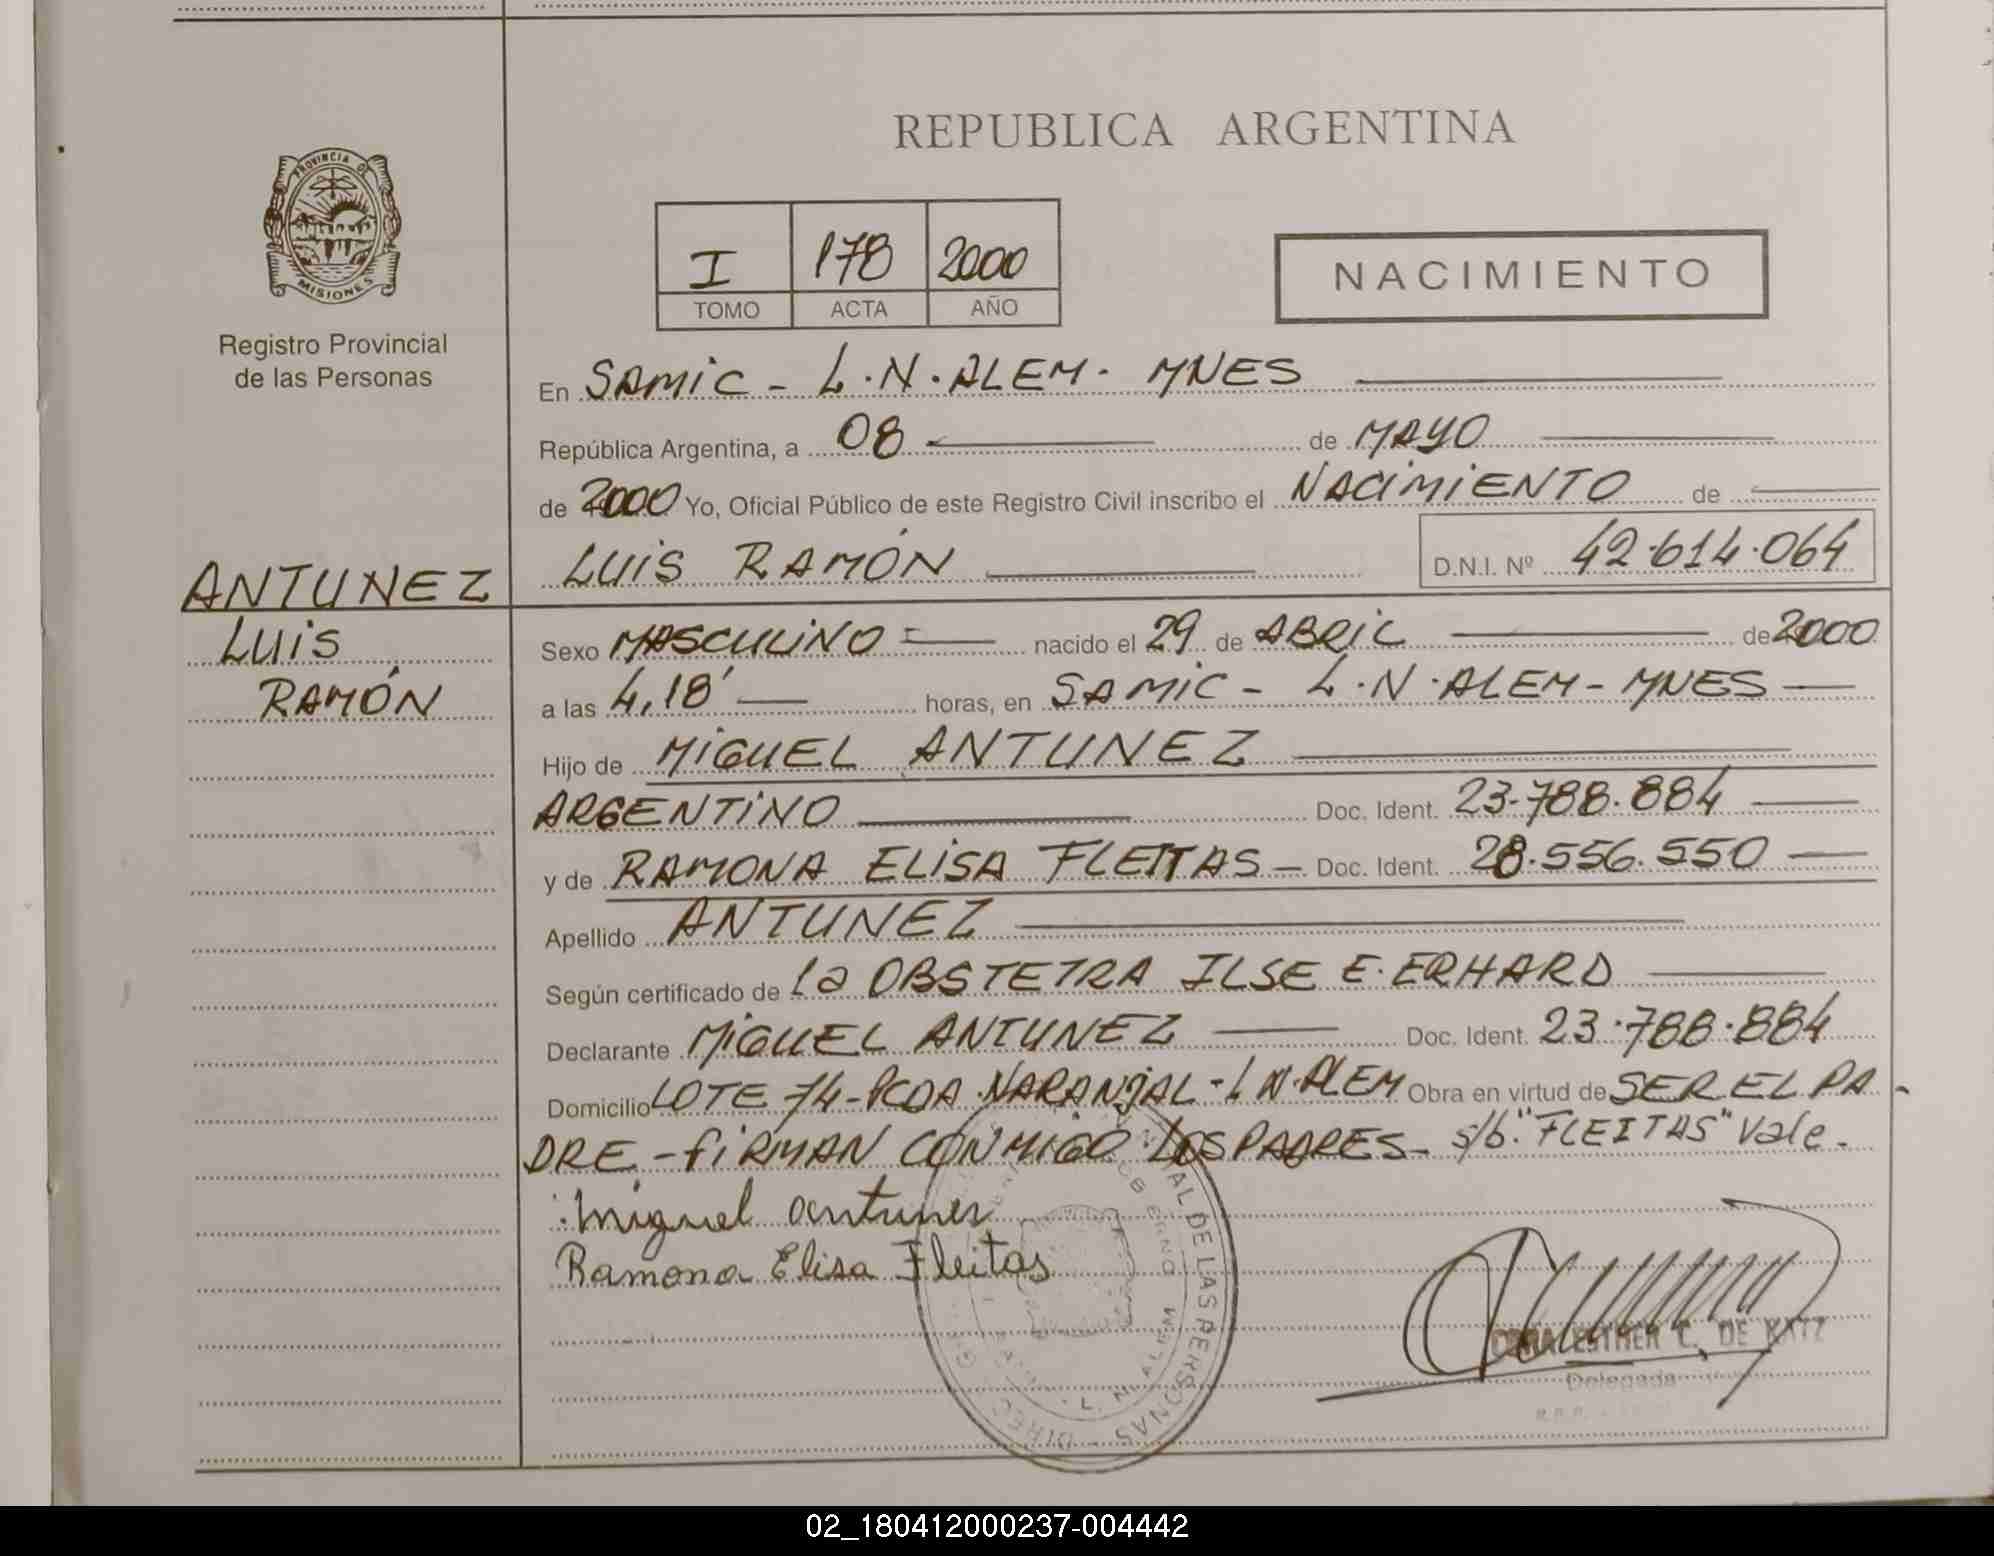 PROVINCIA DE
MISIONES
Registro Provincial
de las Personas
ANTUNEZ
LUIS
RAMÓN
REPUBLICA ARGENTINA
I 178 2000
TOMO ACTA AÑO
NACIMIENTO
En SAMIC - L.N.ALEM. MNES
República Argentina, a 08 de MAYO
de 2000 Yo, Oficial Público de este Registro Civil inscribo el NACIMIENTO de
LUIS RAMÓN D.N.I. Nº 42.614.064
Sexo MASCULINO nacido el 29 de ABRIL de 2000
a las 4,18' horas, en SAMIC - L.N.ALEM - MNES
Hijo de MIGUEL ANTUNEZ
ARGENTINO Doc. Ident. 23.788.884
y de RAMONA ELISA FLEITAS - Doc. Ident. 28.556.550
Apellido ANTUNEZ
Según certificado de la OBSTETRA ILSE E. ERHARD
Declarante MIGUEL ANTUNEZ Doc. Ident. 23.788.884
Domicilio LOTE 74 - PCDA NARANJAL - L N.ALEM Obra en virtud de SER EL PA-
DRE - FIRMAN CONMIGO LOS PADRES - s/b. "FLEITAS" Vale.
Miguel antunez
Ramona Elisa Fleitas
AL DE LAS PERSONAS
L. N. ALEM
ESTHER C. DE KATZ
Delegada
02_180412000237-004442